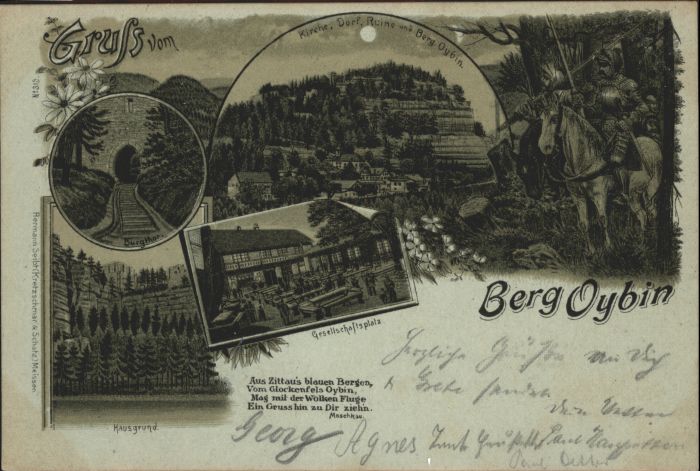 Gruss vom
Kirche, Dorf, Ruine und Berg Oybin.
Burgthor.
Gesellschaftsplatz
Hausgrund.
Berg Oybin
Hermann Seibt (Kretzschmar & Schatz) Meissen
Aus Zittau's blauen Bergen,
Vom Glockenfels Oybin,
Mag mit der Wolken Fluge
Ein Gruss hin zu Dir ziehn.
Moschkau.
Herzliche Grüße an Dich
Grete sendet
Dein
Georg Agnes Paul